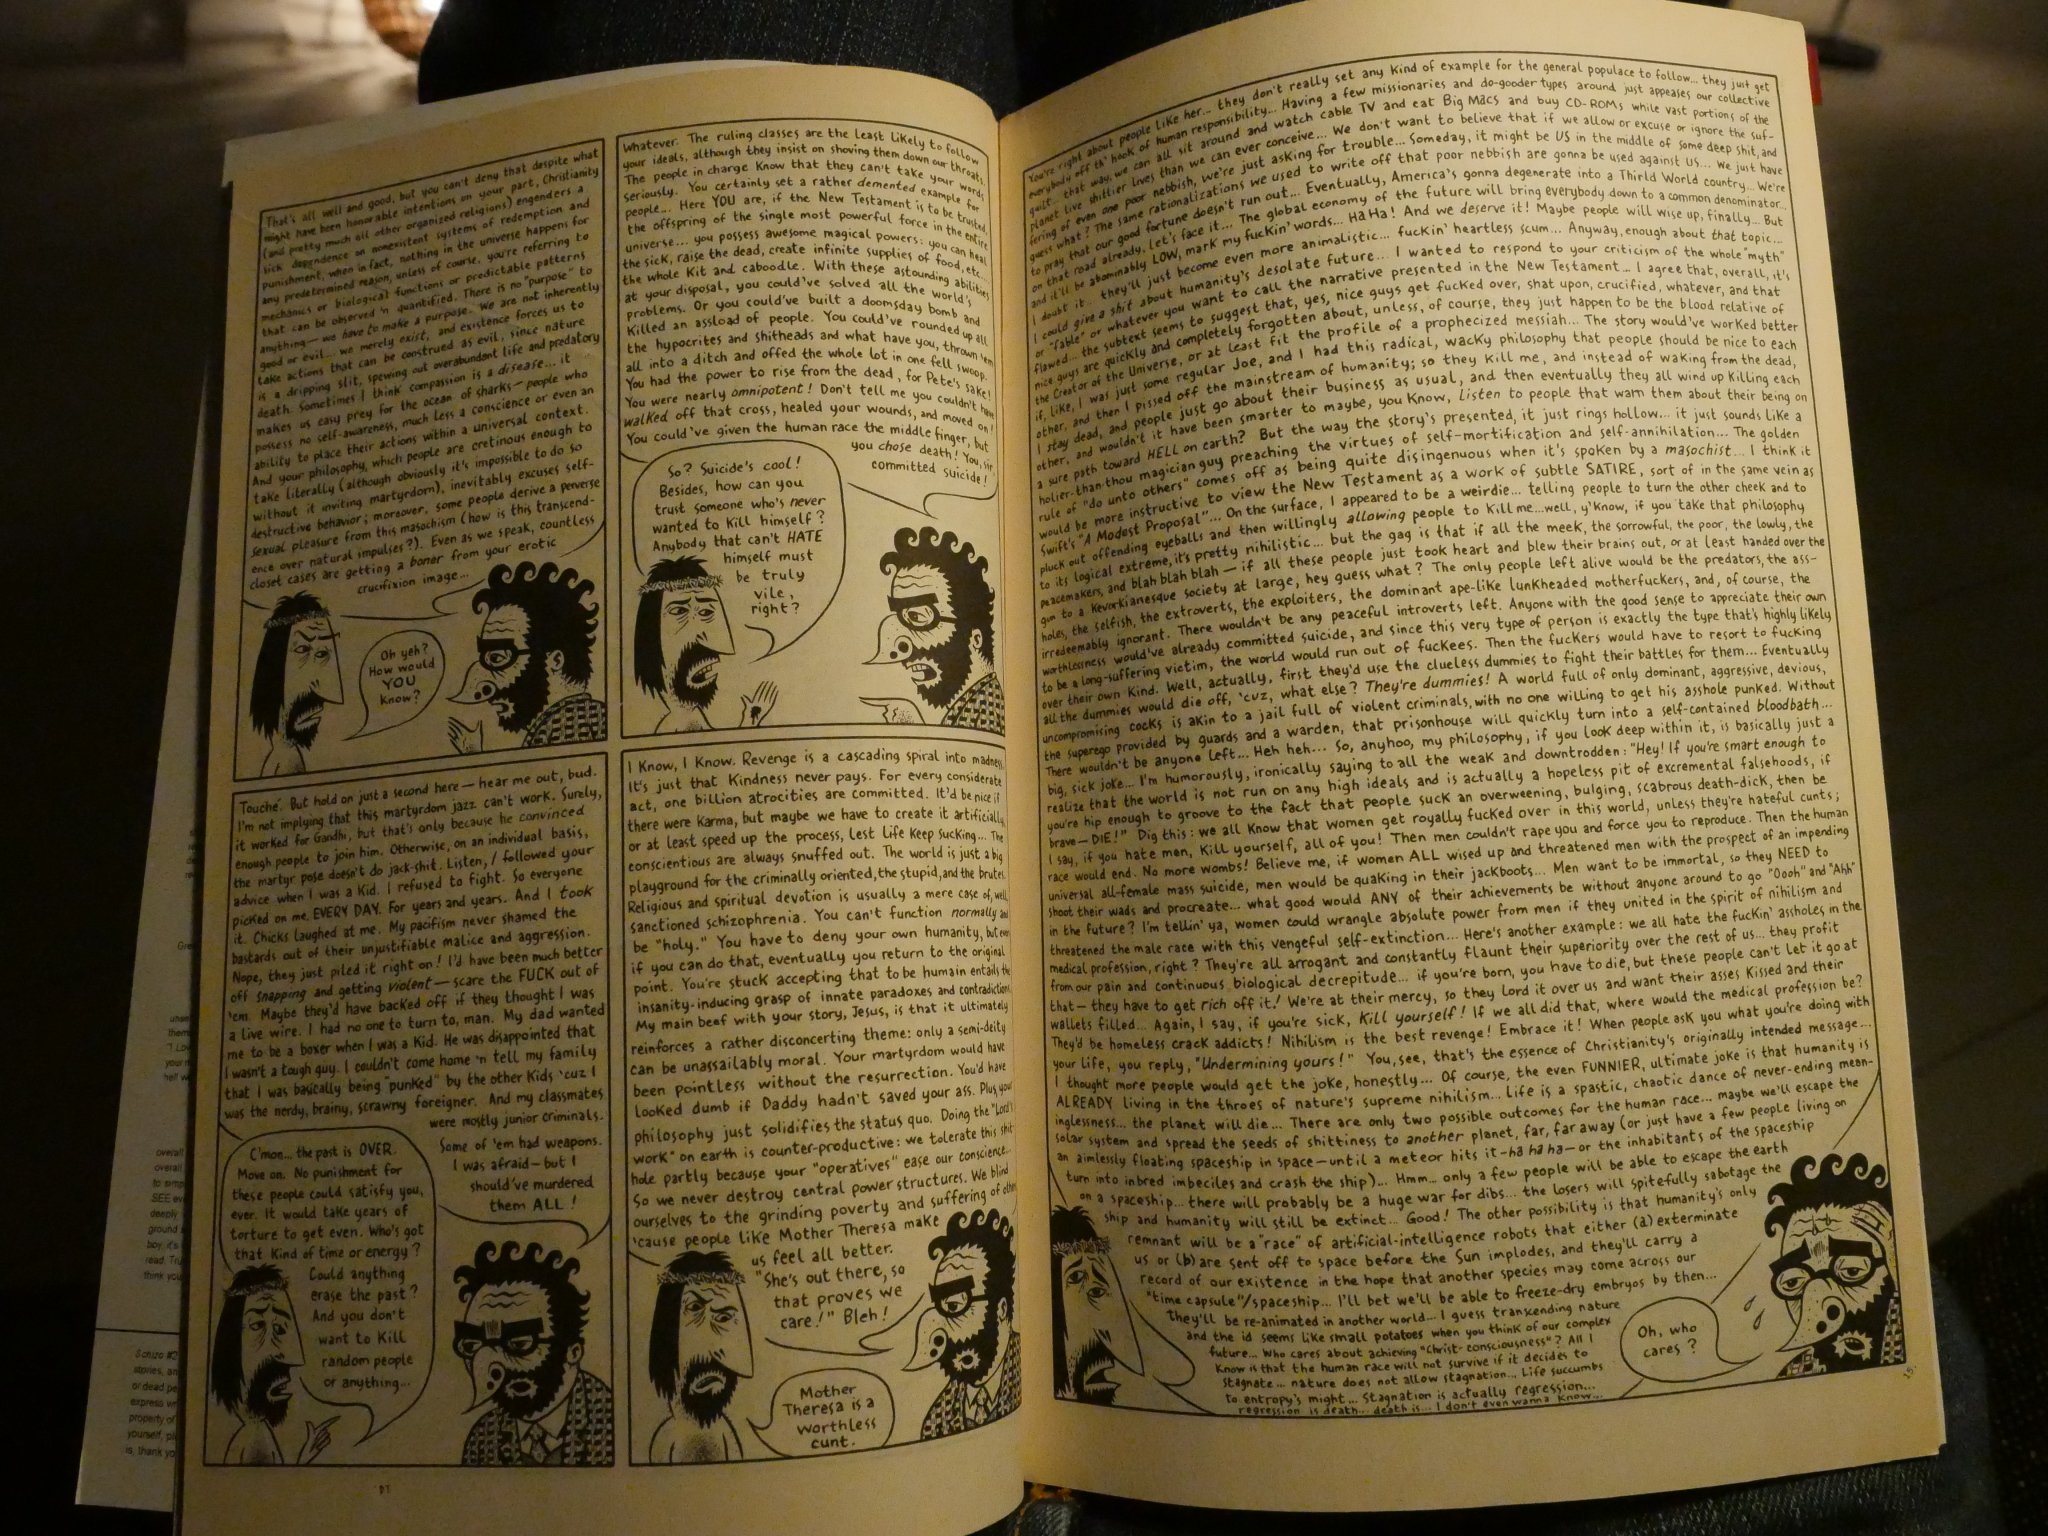 That's all well and good, but you can't deny that despite what
might have been honorable intentions on your part, Christianity
(and pretty much all other organized religions) engenders a
sick dependence on nonexistent systems of redemption and
punishment, when in fact, nothing in the universe happens for
any predetermined reason, unless of course, you're referring to
mechanics or biological functions or predictable patterns
that can be observed 'n quantified. There is no "purpose" to
anything—we have to make a purpose. We are not inherently
good or evil... we merely exist, and existence forces us to
take actions that can be construed as evil, since nature
is a dripping slit, spewing out overabundant life and predatory
death. Sometimes I think compassion is a disease... it
makes us easy prey for the ocean of sharks—people who
possess no self-awareness, much less a conscience or even an
ability to place their actions within a universal context.
And your philosophy, which people are cretinous enough to
take literally (although obviously it's impossible to do so
without inviting martyrdom), inevitably excuses self-
destructive behavior; moreover, some people derive a perverse
sexual pleasure from this masochism (how is this transcend-
ence over natural impulses?). Even as we speak, countless
closet cases are getting a boner from your erotic
crucifixion image...
Oh yeh?
How would
YOU
know?
Whatever. The ruling classes are the least likely to follow
your ideals, although they insist on shoving them down our throats.
The people in charge know that they can't take your words
seriously. You certainly set a rather demented example for
people... Here YOU are, if the New Testament is to be trusted,
the offspring of the single most powerful force in the entire
universe... you possess awesome magical powers: you can heal
the sick, raise the dead, create infinite supplies of food, etc...
the whole kit and caboodle. With these astounding abilities
at your disposal, you could've solved all the world's
problems. Or you could've built a doomsday bomb and
killed an assload of people. You could've rounded up all
the hypocrites and shitheads and what have you, thrown 'em
all into a ditch and offed the whole lot in one fell swoop.
You had the power to rise from the dead, for Pete's sake!
You were nearly omnipotent! Don't tell me you couldn't have
walked off that cross, healed your wounds, and moved on!
You could've given the human race the middle finger, but
you chose death! You, sir,
committed suicide!
So? Suicide's cool!
Besides, how can you
trust someone who's never
wanted to kill himself?
Anybody that can't HATE
himself must
be truly
vile,
right?
Touché. But hold on just a second here—hear me out, bud.
I'm not implying that this martyrdom jazz can't work. Surely,
it worked for Gandhi, but that's only because he convinced
enough people to join him. Otherwise, on an individual basis,
the martyr pose doesn't do jack-shit. Listen, I followed your
advice when I was a kid. I refused to fight. So everyone
picked on me EVERY DAY. For years and years. And I took
it. Chicks laughed at me. My pacifism never shamed the
bastards out of their unjustifiable malice and aggression.
Nope, they just piled it right on! I'd have been much better
off snapping and getting violent—scare the FUCK out of
'em. Maybe they'd have backed off if they thought I was
a live wire. I had no one to turn to, man. My dad wanted
me to be a boxer when I was a kid. He was disappointed that
I wasn't a tough guy. I couldn't come home 'n tell my family
that I was basically being "punked" by the other kids 'cuz I
was the nerdy, brainy, scrawny foreigner. And my classmates
were mostly junior criminals.
Some of 'em had weapons.
I was afraid—but I
should've murdered
them ALL!
C'mon... the past is OVER.
Move on. No punishment for
these people could satisfy you,
ever. It would take years of
torture to get even. Who's got
that kind of time or energy?
Could anything
erase the past?
And you don't
want to kill
random people
or anything...
I know, I know. Revenge is a cascading spiral into madness.
It's just that kindness never pays. For every considerate
act, one billion atrocities are committed. It'd be nice if
there were karma, but maybe we have to create it artificially,
or at least speed up the process, lest life keep sucking... The
conscientious are always snuffed out. The world is just a big
playground for the criminally oriented, the stupid, and the brutes.
Religious and spiritual devotion is usually a mere case of, well,
sanctioned schizophrenia. You can't function normally and
be "holy." You have to deny your own humanity, but even
if you can do that, eventually you return to the original
point. You're stuck accepting that to be human entails the
insanity-inducing grasp of innate paradoxes and contradictions.
My main beef with your story, Jesus, is that it ultimately
reinforces a rather disconcerting theme: only a semi-deity
can be unassailably moral. Your martyrdom would have
been pointless without the resurrection. You'd have
looked dumb if Daddy hadn't saved your ass. Plus, your
philosophy just solidifies the status quo. Doing the "Lord's
work" on earth is counter-productive: we tolerate this shit
hole partly because your "operatives" ease our conscience...
So we never destroy central power structures. We blind
ourselves to the grinding poverty and suffering of others
'cause people like Mother Theresa make
us feel all better.
"She's out there, so
that proves we
care!" Bleh!
Mother
Theresa is a
worthless
cunt.
14
You're right about people like her... they don't really set any kind of example for the general populace to follow... they just get
everybody off th' hook of human responsibility... Having a few missionaries and do-gooder types around just appeases our collective
guilt... that way, we can all sit around and watch cable TV and eat Big Macs and buy CD-ROMs while vast portions of the
planet live shittier lives than we can ever conceive... We don't want to believe that if we allow or excuse or ignore the suf-
fering of even one poor nebbish, we're just asking for trouble... Someday, it might be US in the middle of some deep shit, and
guess what? The same rationalizations we used to write off that poor nebbish are gonna be used against US... We just have
to pray that our good fortune doesn't run out... Eventually, America's gonna degenerate into a Third World country... We're
on that road already, let's face it... The global economy of the future will bring everybody down to a common denominator...
and it'll be abominably LOW, mark my fuckin' words... Ha Ha! And we deserve it! Maybe people will wise up, finally... But
I doubt it... they'll just become even more animalistic... fuckin' heartless scum... Anyway, enough about that topic...
I could give a shit about humanity's desolate future... I wanted to respond to your criticism of the whole "myth"
or "fable" or whatever you want to call the narrative presented in the New Testament... I agree that, overall, it's
flawed... the subtext seems to suggest that, yes, nice guys get fucked over, shat upon, crucified, whatever, and that
nice guys are quickly and completely forgotten about, unless, of course, they just happen to be the blood relative of
the Creator of the Universe, or at least fit the profile of a prophecized messiah... The story would've worked better
if, like, I was just some regular Joe, and I had this radical, wacky philosophy that people should be nice to each
other, and then I pissed off the mainstream of humanity; so they kill me, and instead of waking from the dead,
I stay dead, and people just go about their business as usual, and then eventually they all wind up killing each
other, and wouldn't it have been smarter to maybe, you know, listen to people that warn them about their being on
a sure path toward HELL on earth? But the way the story's presented, it just rings hollow... it just sounds like a
holier-than-thou magician guy preaching the virtues of self-mortification and self-annihilation... The golden
rule of "do unto others" comes off as being quite disingenuous when it's spoken by a masochist... I think it
would be more instructive to view the New Testament as a work of subtle SATIRE, sort of in the same vein as
Swift's "A Modest Proposal"... On the surface, I appeared to be a weirdie... telling people to turn the other cheek and to
pluck out offending eyeballs and then willingly allowing people to kill me...well, y'know, if you take that philosophy
to its logical extreme, it's pretty nihilistic... but the gag is that if all the meek, the sorrowful, the poor, the lowly, the
peacemakers, and blah blah blah—if all these people just took heart and blew their brains out, or at least handed over the
gun to a Kevorkianesque society at large, hey guess what? The only people left alive would be the predators, the ass-
holes, the selfish, the extroverts, the exploiters, the dominant ape-like lunkheaded motherfuckers, and, of course, the
irredeemably ignorant. There wouldn't be any peaceful introverts left. Anyone with the good sense to appreciate their own
worthlessness would've already committed suicide, and since this very type of person is exactly the type that's highly likely
to be a long-suffering victim, the world would run out of fuckees. Then the fuckers would have to resort to fucking
over their own kind. Well, actually, first they'd use the clueless dummies to fight their battles for them... Eventually
all the dummies would die off, 'cuz, what else? They're dummies! A world full of only dominant, aggressive, devious,
uncompromising cocks is akin to a jail full of violent criminals, with no one willing to get his asshole punked. Without
the superego provided by guards and a warden, that prisonhouse will quickly turn into a self-contained bloodbath...
There wouldn't be anyone left... Heh heh... So, anyhoo, my philosophy, if you look deep within it, is basically just a
big, sick joke... I'm humorously, ironically saying to all the weak and downtrodden: "Hey! If you're smart enough to
realize that the world is not run on any high ideals and is actually a hopeless pit of excremental falsehoods, if
you're hip enough to groove to the fact that people suck an overweening, bulging, scabrous death-dick, then be
brave—DIE!" Dig this: we all know that women get royally fucked over in this world, unless they're hateful cunts;
I say, if you hate men, kill yourself, all of you! Then men couldn't rape you and force you to reproduce. Then the human
race would end. No more wombs! Believe me, if women ALL wised up and threatened men with the prospect of an impending
universal all-female mass suicide, men would be quaking in their jackboots... Men want to be immortal, so they NEED to
shoot their wads and procreate... what good would ANY of their achievements be without anyone around to go "Oooh" and "Ahh"
in the future? I'm tellin' ya, women could wrangle absolute power from men if they united in the spirit of nihilism and
threatened the male race with this vengeful self-extinction... Here's another example: we all hate the fuckin' assholes in the
medical profession, right? They're all arrogant and constantly flaunt their superiority over the rest of us... they profit
from our pain and continuous biological decrepitude... if you're born, you have to die, but these people can't let it go at
that—they have to get rich off it! We're at their mercy, so they lord it over us and want their asses kissed and their
wallets filled... Again, I say, if you're sick, kill yourself! If we all did that, where would the medical profession be?
They'd be homeless crack addicts! Nihilism is the best revenge! Embrace it! When people ask you what you're doing with
your life, you reply, "Undermining yours!" You, see, that's the essence of Christianity's originally intended message...
I thought more people would get the joke, honestly... Of course, the even FUNNIER, ultimate joke is that humanity is
ALREADY living in the throes of nature's supreme nihilism... Life is a spastic, chaotic dance of never-ending mean-
inglessness... the planet will die... There are only two possible outcomes for the human race... maybe we'll escape the
solar system and spread the seeds of shittiness to another planet, far, far away (or just have a few people living on
an aimlessly floating spaceship in space—until a meteor hits it—ha ha ha—or the inhabitants of the spaceship
turn into inbred imbeciles and crash the ship)... Hmm... only a few people will be able to escape the earth
on a spaceship... there will probably be a huge war for dibs... the losers will spitefully sabotage the
ship and humanity will still be extinct... Good! The other possibility is that humanity's only
remnant will be a "race" of artificial-intelligence robots that either (a) exterminate
us or (b) are sent off to space before the Sun implodes, and they'll carry a
record of our existence in the hope that another species may come across our
"time capsule"/spaceship... I'll bet we'll be able to freeze-dry embryos by then...
They'll be re-animated in another world... I guess transcending nature
and the id seems like small potatoes when you think of our complex
future... Who cares about achieving "Christ-consciousness"? All I
know is that the human race will not survive if it decides to
stagnate... nature does not allow stagnation... Life succumbs
to entropy's might... Stagnation is actually regression...
regression is death... death is... I don't even wanna know...
Oh, who
cares?
15
Schizo #2
stories, an
of dead pe
express wr
property of
yourself, pl
is, thank yo